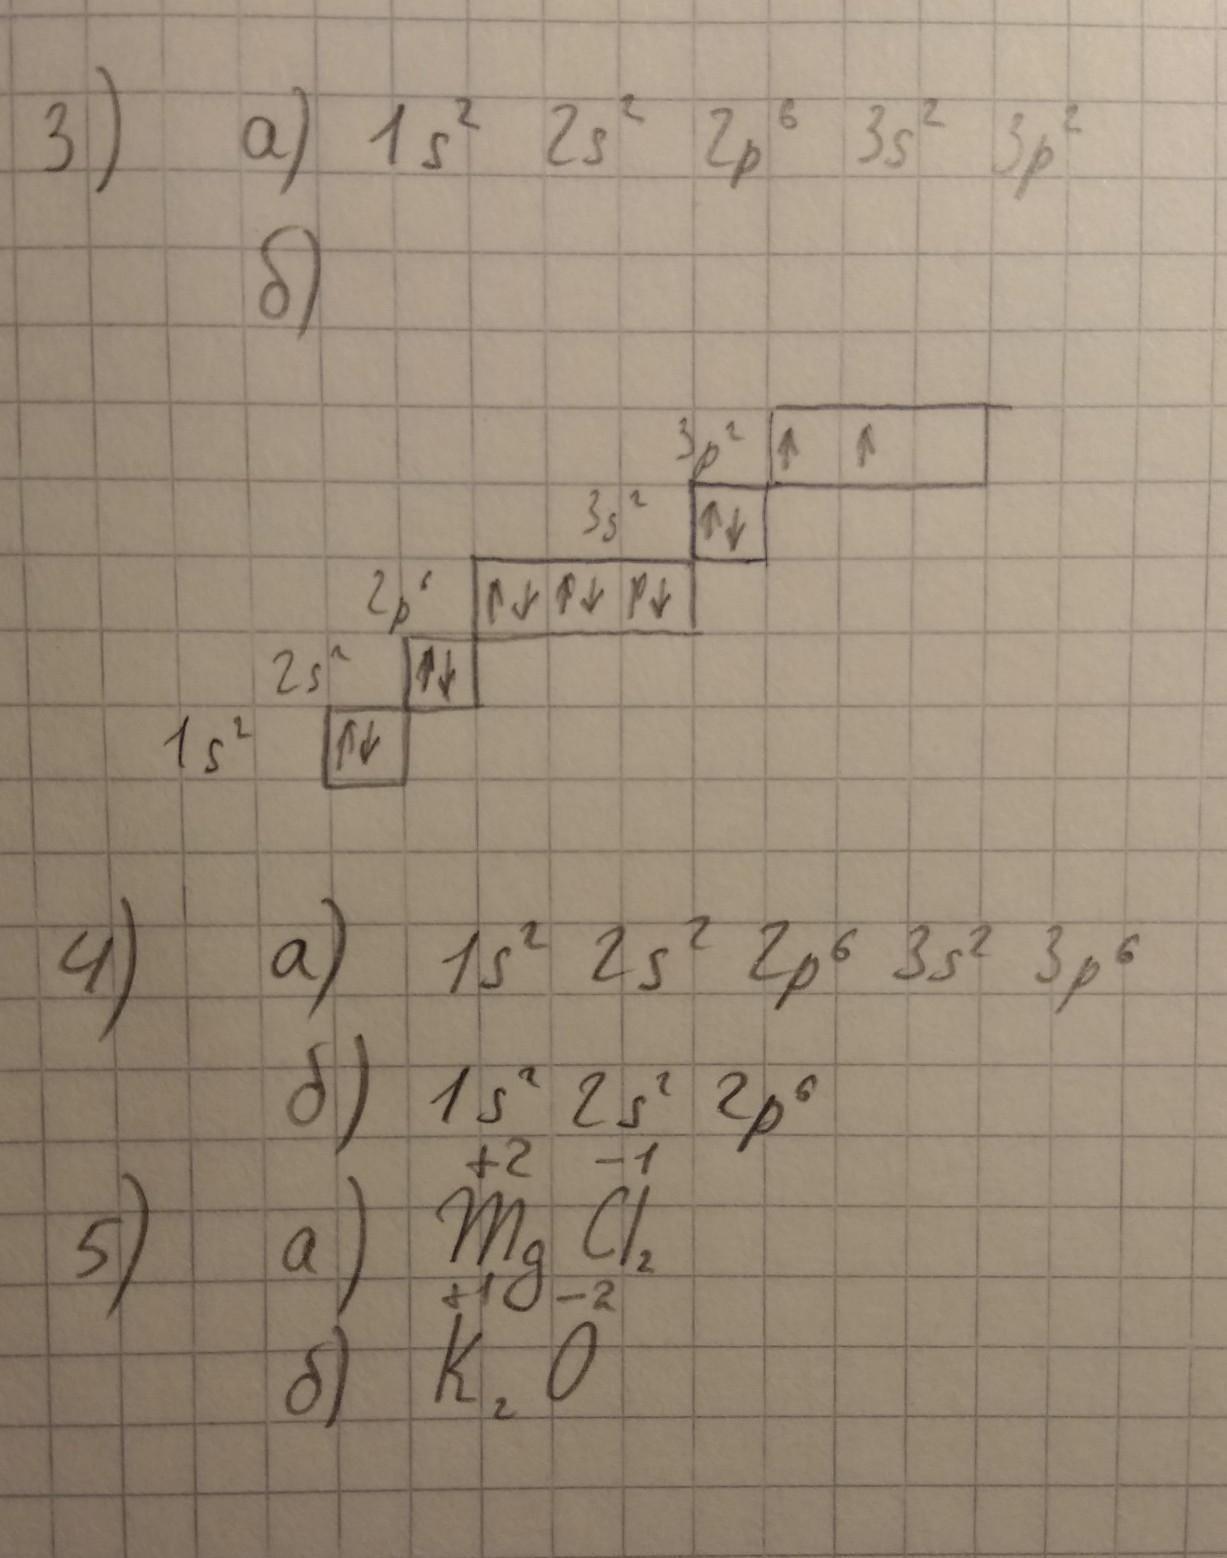 3) а) 1s² 2s² 2p⁶ 3s² 3p²
б)
3p² ↑ ↑
3s² ↑↓
2p⁶ ↑↓ ↑↓ ↑↓
2s² ↑↓
1s² ↑↓
4) а) 1s² 2s² 2p⁶ 3s² 3p⁶
б) 1s² 2s² 2p⁶
+2 -1
5) а) Mg Cl₂
+1 -2
б) K₂ O